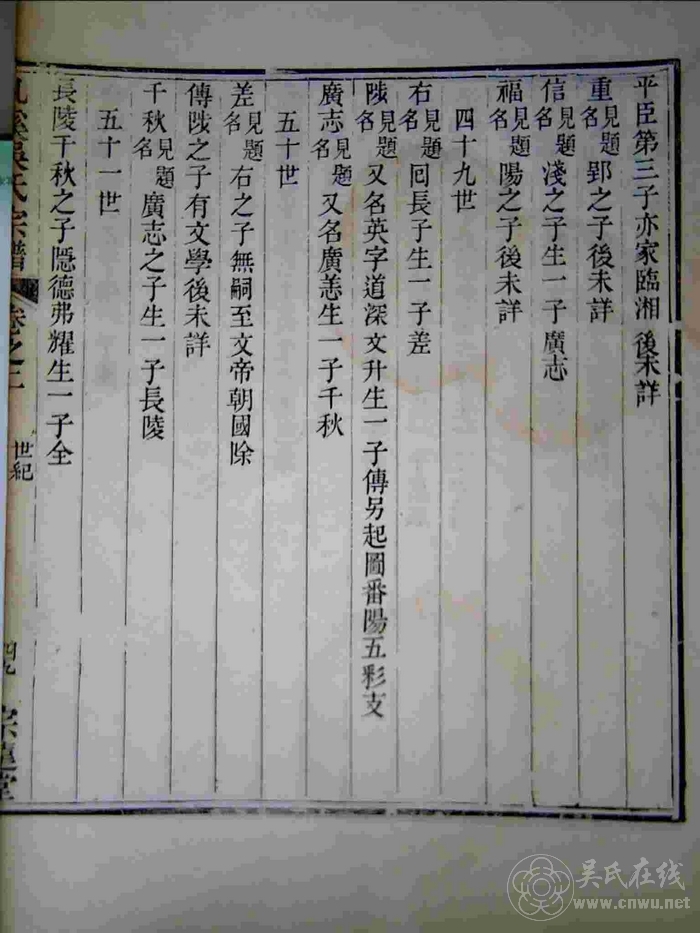 平臣第三子亦家臨湘後未詳
重見題名郢之子後未詳
信見題名淺之子生一子廣志
福見題名陽之子後未詳
四十九世
右見題名回長子生一子差
陵見題名又名英字道深文升生一子傳另起圖番陽五彩支
廣志見題名又名廣恙生一子千秋
五十世
差見題名右之子無嗣至文帝朝國除
傳陵之子有文學後未詳
千秋見題名廣志之子生一子長陵
五十一世
長陵千秋之子隱德弗耀生一子全
吳氏宗譜
卷之二
世紀
四九
吴氏在线
www.cnwu.net